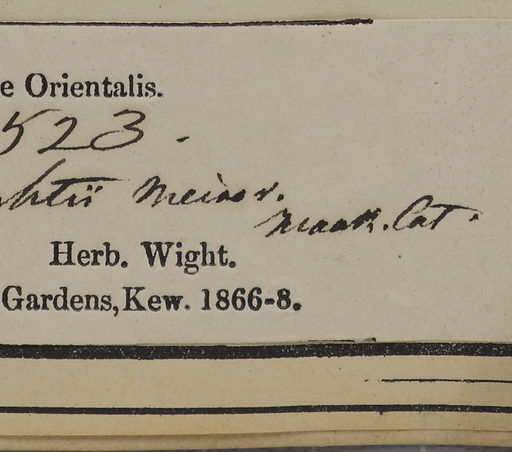 e Orientalis.
523.
ghtii Meisn.
Herb. Wight.
Gardens, Kew. 1866-8.